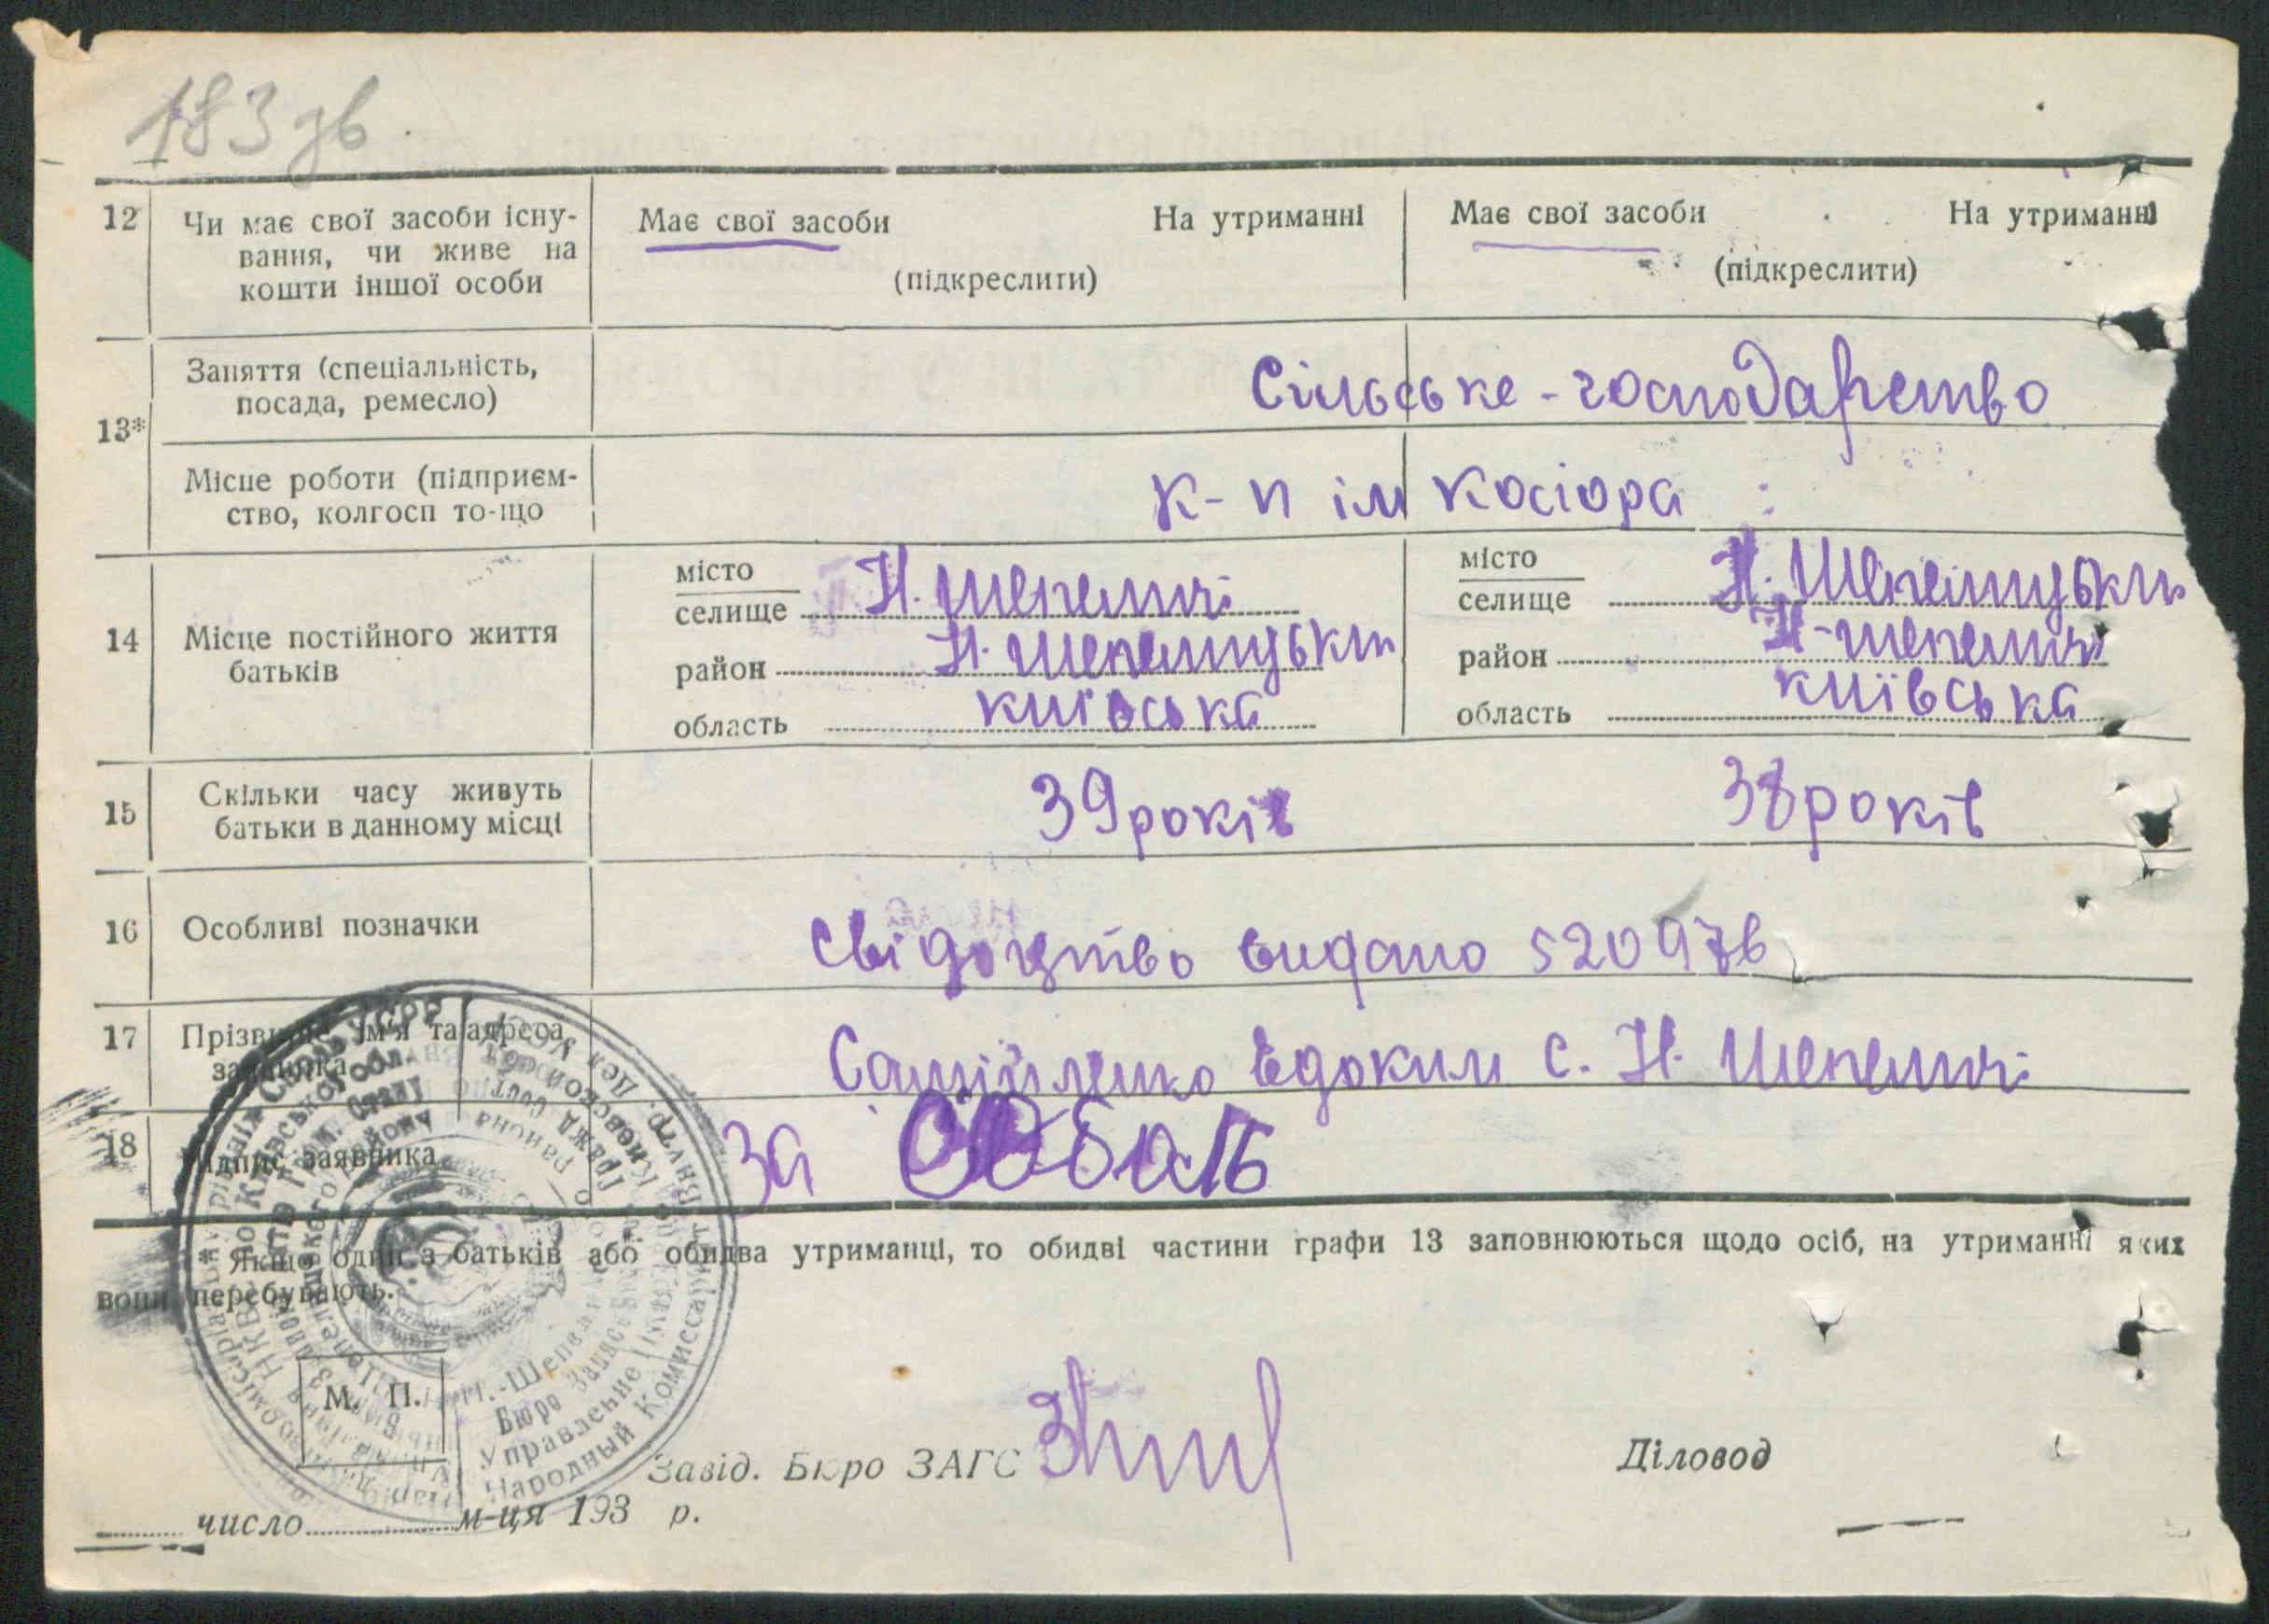 183 зв
12 Чи має свої засоби існу- Має свої засоби На утриманні Має свої засоби На утриманні
вання, чи живе на (підкреслити) (підкреслити)
кошти іншої особи
13* Заняття (спеціальність, Сільське-господарство
посада, ремесло)
Місце роботи (підприєм- к-п ім Косіора
ство, колгосп то-що
14 Місце постійного життя
батьків
місто
селище Н. Шепеличі
район Н. Шепелицьки
область київська
місто
селище Н. Шепелицьки
район Н-Шепеличі
область київська
15 Скільки часу живуть 39 років 38 років
батьки в данному місці
16 Особливі позначки Свідоцтво видано 520976
17 Прізвище ім'я та адреса Євдоким с. Н. Шепеличі
заявника
18 Підпис заявника за
* Якщо один з батьків або обидва утриманці, то обидві частини графи 13 заповнюються щодо осіб, на утриманні яких
вони перебувають.
М. П.
Н.-Шепел
Бюро Запис
Управление
Народный Комиссариат Внутр. Дел УССР
Киевской
Завід. Бюро ЗАГС Діловод
число м-ця 193 р.